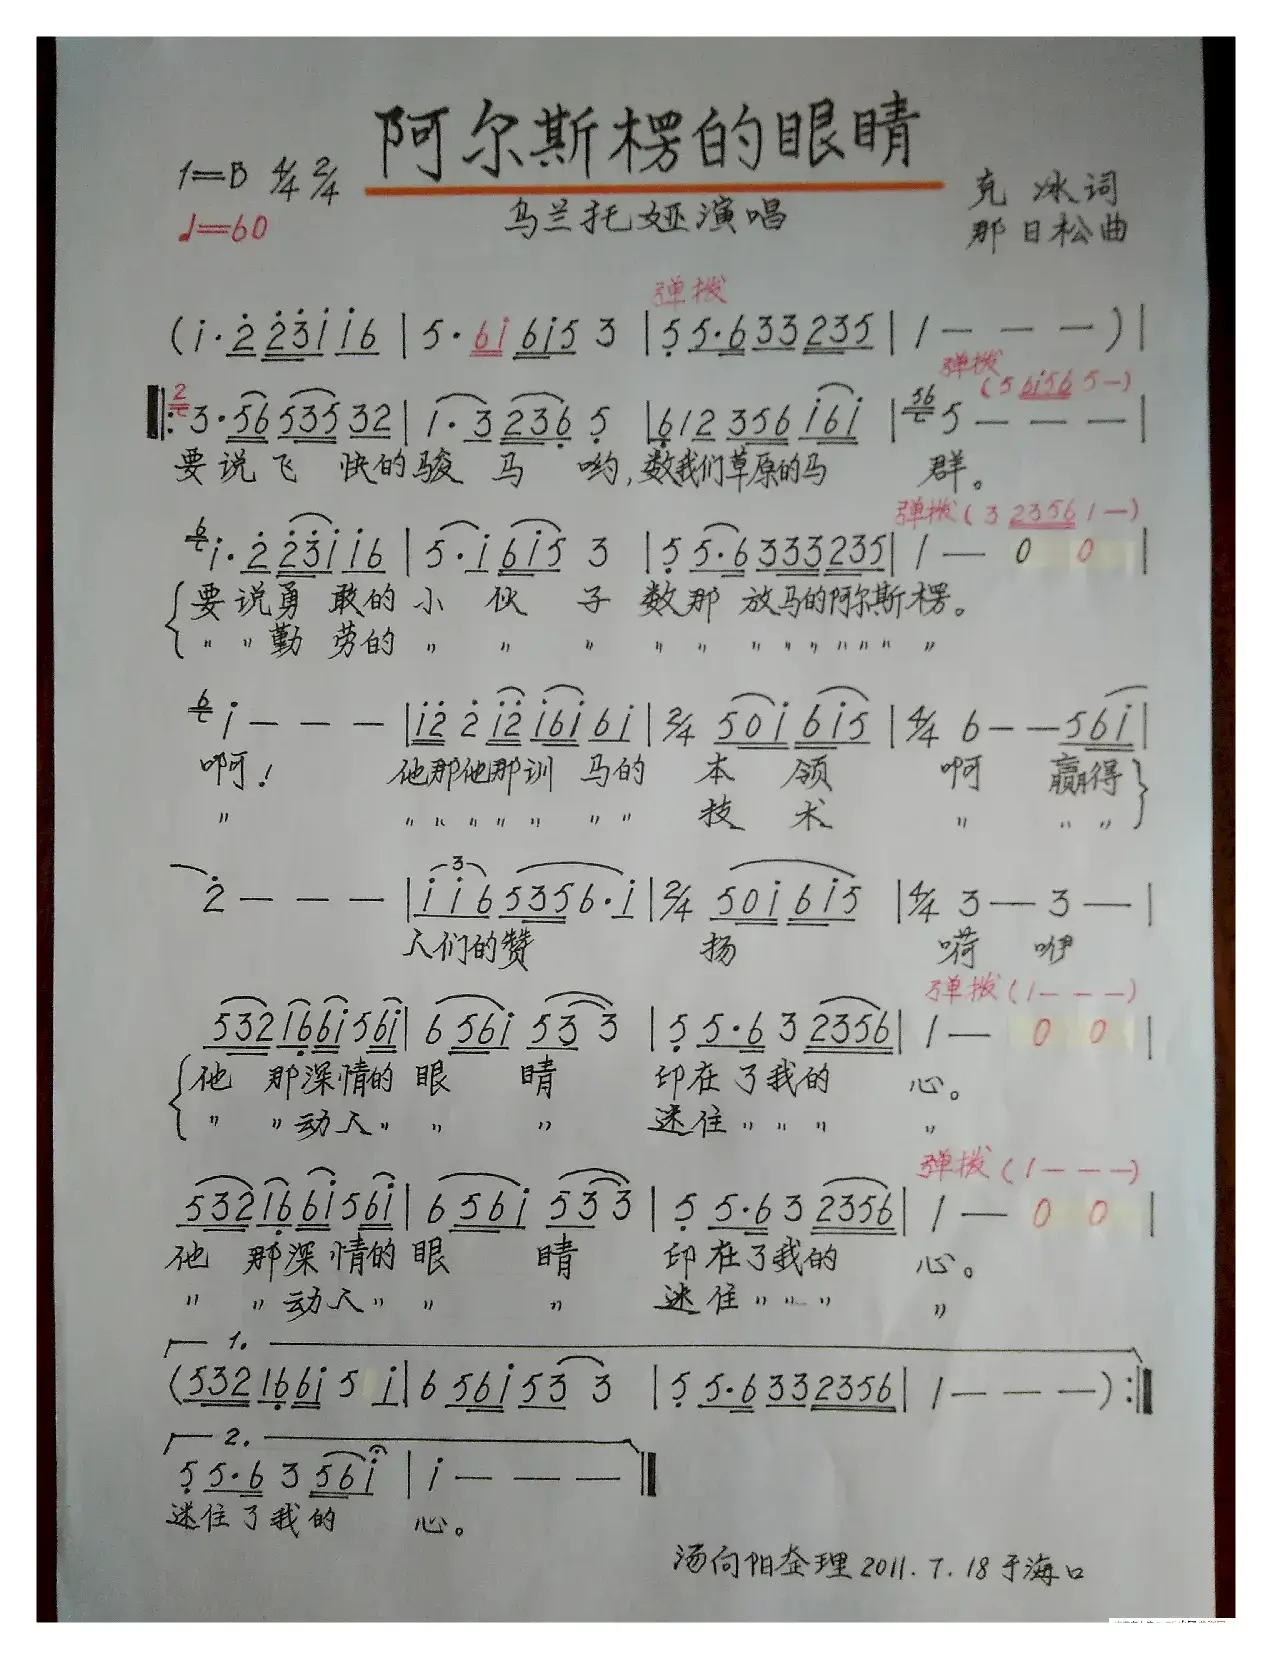 阿尔斯楞的眼睛
1=B 4/4 2/4
♩=60
乌兰托娅演唱
克 冰词
那日松曲
弹拨
(i·2 2 3 i i 6 | 5·6 i 6 i 5 3 | 5 5·6 3 3 2 3 5 | 1 — — — ) |
弹拨
(5 6 i 5 6 5 —)
‖: 2 3·5 6 5 3 5 3 2 | 1·3 2 3 6 5 | 6 1 2 3 5 6 i 6 i | 5 6 5 — — — |
要说飞 快的骏 马 哟,数我们草原的马 群。
弹拨(3 2 3 5 6 1 —)
6 i·2 2 3 i i 6 | 5·i 6 i 5 3 | 5 5·6 3 3 3 2 3 5 | 1 — 0 0 |
要说勇 敢的 小 伙 子 数那 放马的阿尔斯楞。
" " 勤 劳的 " " " " " " " " " " " "
6 i — — — | i 2 2 i 2 i 6 i 6 i | 2/4 5 0 i 6 i 5 | 4/4 6 — — 5 6 i |
啊! 他那他那训 马的 本 领 啊 赢得
" " " " " " " " 技 术 " " "
2 — — — | 3 i i 6 5 3 5 6·i | 2/4 5 0 i 6 i 5 | 4/4 3 — 3 — |
人们的赞 扬 嗬 咿
弹拨(1 — — —)
5 3 2 1 6 6 i 5 6 i | 6 5 6 i 5 3 3 | 5 5·6 3 2 3 5 6 | 1 — 0 0 |
他 那深情的 眼 睛 印在了我的 心。
" " 动人 " " " 迷住 " " " "
弹拨(1 — — —)
5 3 2 1 6 6 i 5 6 i | 6 5 6 i 5 3 3 | 5 5·6 3 2 3 5 6 | 1 — 0 0 |
他 那深情的 眼 睛 印在了我的 心。
" " 动人 " " " 迷住 " " " "
1.
(5 3 2 1 6 6 i 5 i | 6 5 6 i 5 3 3 | 5 5·6 3 3 2 3 5 6 | 1 — — — ) :‖
2.
5 5·6 3 5 6 i | i — — — ‖
迷住了我的 心。
汤向阳荃理 2011.7.18于海口